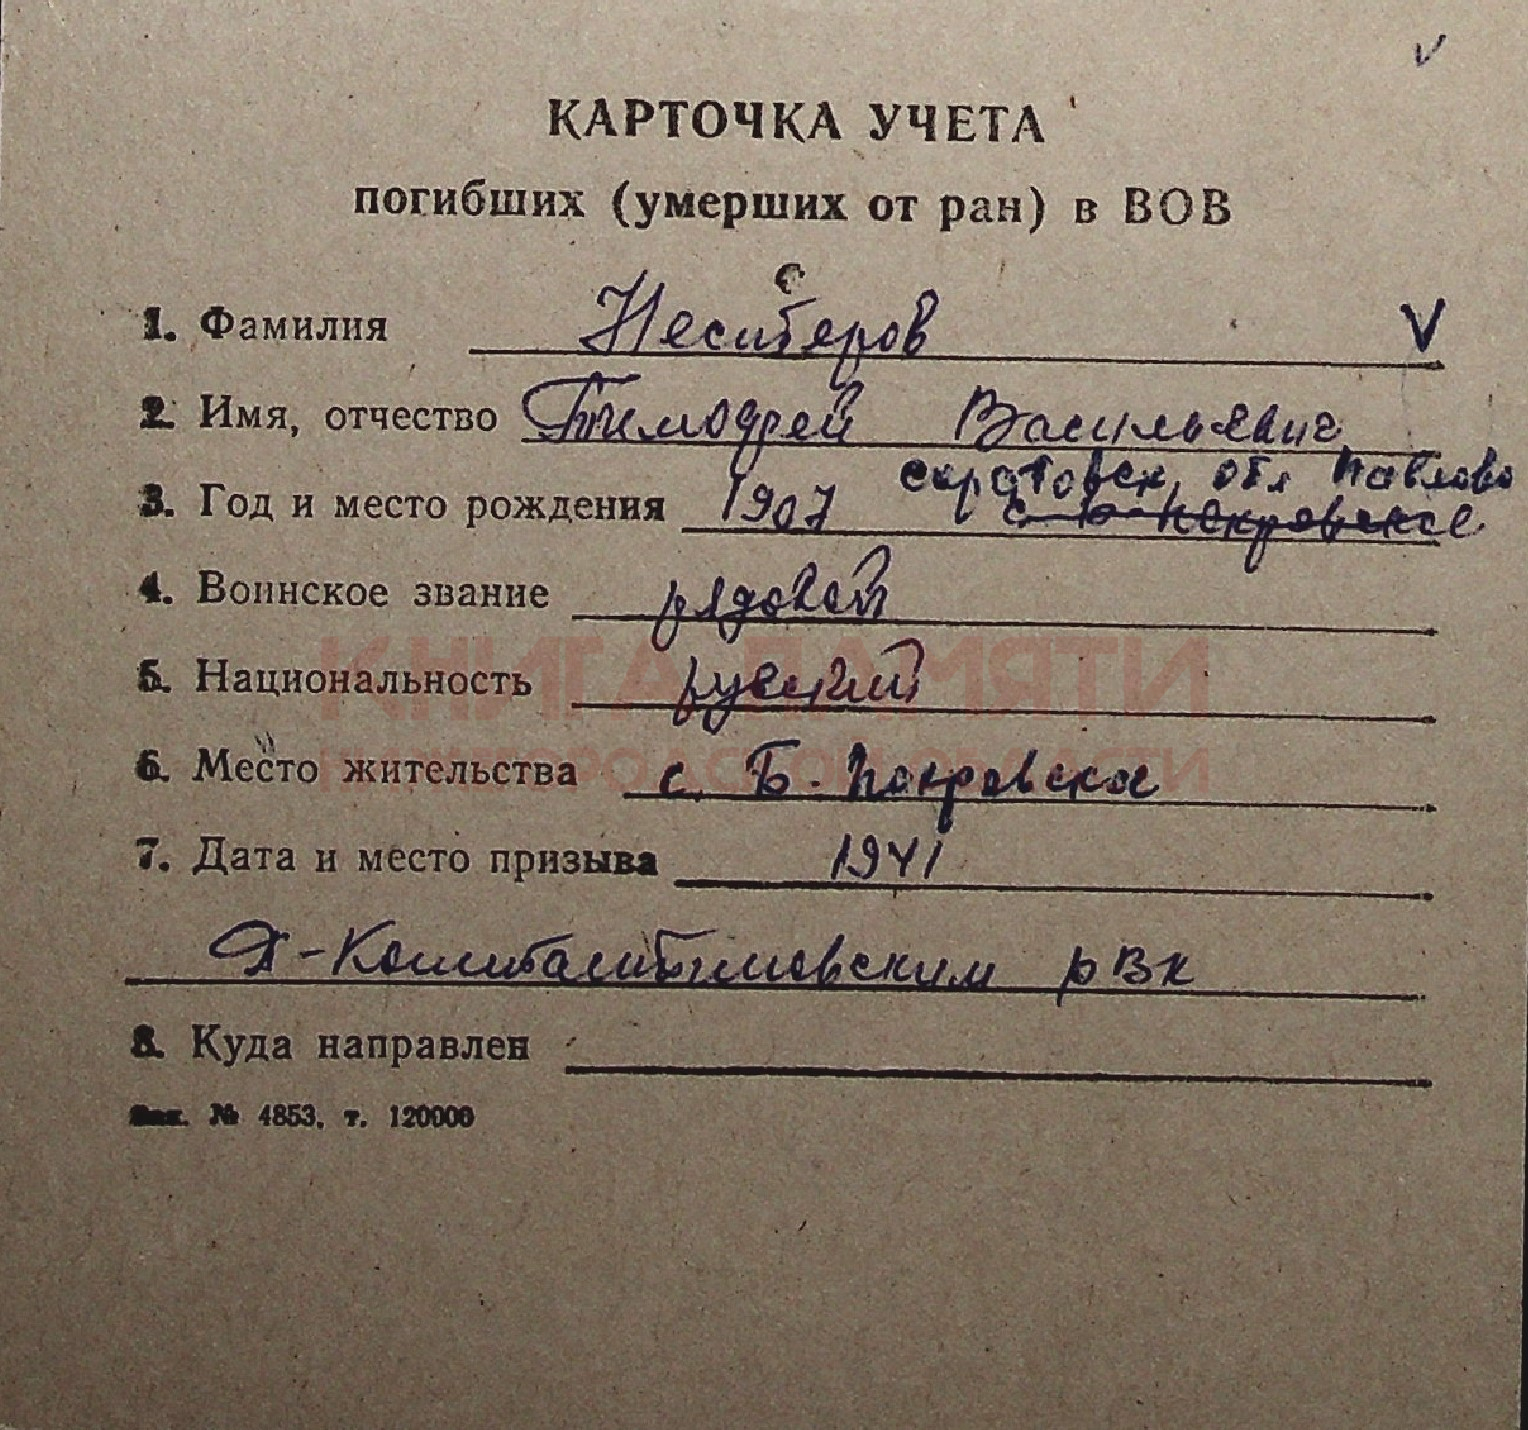 КАРТОЧКА УЧЕТА
погибших (умерших от ран) в ВОВ
1. Фамилия Неситеров
2. Имя, отчество Тимофей Васильевич
саратовск, обл Павлово
3. Год и место рождения 1907 с Б-Покровское
4. Воинское звание рядовой
5. Национальность русский
КНИГА ПАМЯТИ
6. Место жительства с. Б. Покровское
НИЖЕГОРОДСКОЙ ОБЛАСТИ
7. Дата и место призыва 1941
Д-Константиновским рВк
8. Куда направлен
Зак. № 4853. т. 120000